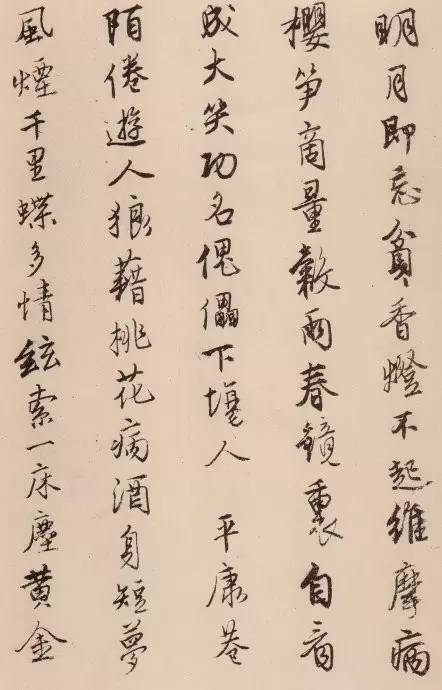 明月即忘貧香燈不起維摩病
櫻笋商量穀雨春鏡裏自看
成大笑功名傀儡下塲人 平康巷
陌倦遊人狼藉桃花病酒身短夢
風煙千里蝶多情絃索一床塵黃金